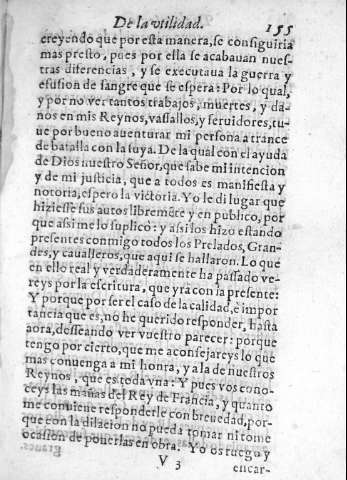 De la vtilidad. 155
creyendo que por esta manera, se consiguiria
mas presto, pues por ella se acabauan nues-
tras diferencias, y se executaua la guerra y
efusion de sangre que se espera: Por lo qual,
y por no ver tantos trabajos, muertes, y da-
nos en mis Reynos, vassallos, y seruidores, tu-
ue por bueno auenturar mi persona a trance
de batalla con la suya. De la qual con el ayuda
de Dios nuestro Señor, que sabe mi intencion
y de mi justicia, que a todos es manifiesta y
notoria, espero la victoria. Yo le di lugar que
hiziesse sus autos libremẽte y en publico, por
que assi me lo suplicò: y assi los hizo estando
presentes conmigo todos los Prelados, Gran-
des, y caualleros, que aqui se hallaron. Lo que
en ello real y verdaderamente ha passado ve-
reys por la escritura, que yra con la presente:
Y porque por ser el caso de la calidad, è impor
tancia que es, no he querido responder, hasta
aora, desseando ver vuestro parecer: porque
tengo por cierto, que me aconsejareys lo que
mas conuenga a mi honra, y a la de nuestros
Reynos, que es toda vna: Y pues vos cono-
ceys las mañas del Rey de Francia, y quanto
me conuiene responderle con breuedad, por-
que con la dilacion no pueda tomar ni tome
ocasion de ponerlas en obra. Yo os ruego y
V 3 encar-